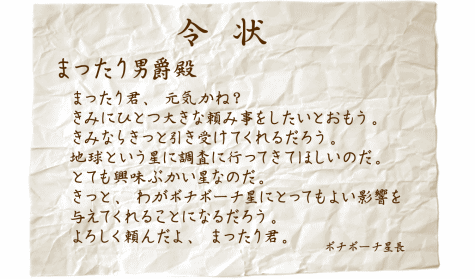 令状
まったり男爵殿
まったり君、元気かね？
きみにひとつ大きな頼み事をしたいとおもう。
きみならきっと引き受けてくれるだろう。
地球という星に調査に行ってきてほしいのだ。
とても興味ぶかい星なのだ。
きっと、わがポチポーチ星にとってもよい影響を
与えてくれることになるだろう。
よろしく頼んだよ、まったり君。
ポチポーチ星長